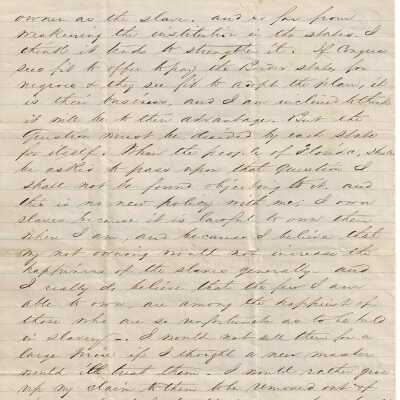 owner as the slave. and so far from
weakening the institution in the states. I
think it tends to strengthen it. If Congress
sees fit to offer to pay the Border states for
negroes & they see fit to adopt the plan, it
is their business, and I am inclined to think
it will be to their advantage. But the
Question must be decided by each state
for itself. When the people of Florida, shall
be asked to pass upon that Question I
shall not be found objecting to it. and
this is no new policy with me; I own
slaves because it is lawful to own them
where I am, and because I believe that
my not owning would not increase the
happiness of the slaves generally. and
I really do believe that the few I am
able to own, are among the happiest of
those who are so unfortunate as to be held
in slavery. I would not sell them for a
large price if I thought a new master
would ill treat them. I would rather give
up my claim to them to be removed out of